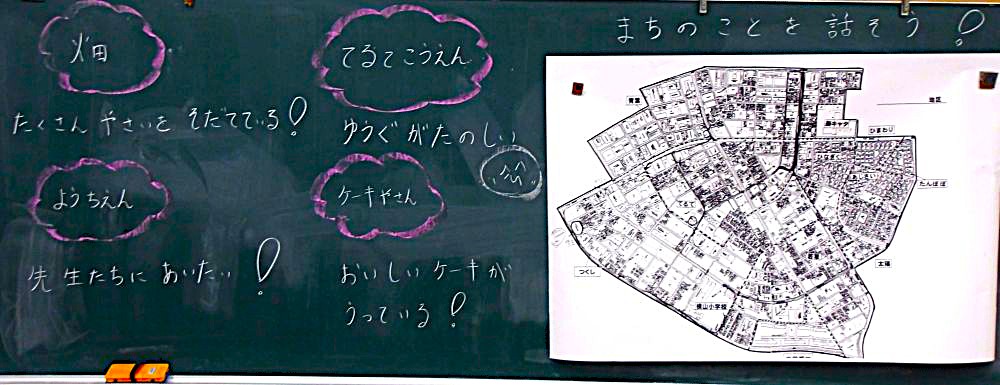 まちのことを話そう!
畑
たくさんやさいをそだてている!
てるてこうえん
ゆうぐがたのしい
ようちえん
先生たちにあいたい!
ケーキやさん
おいしいケーキが
うっている!
青葉
地区
ひまわり
たんぽぽ
太陽
つくし
てるて
横山小学校